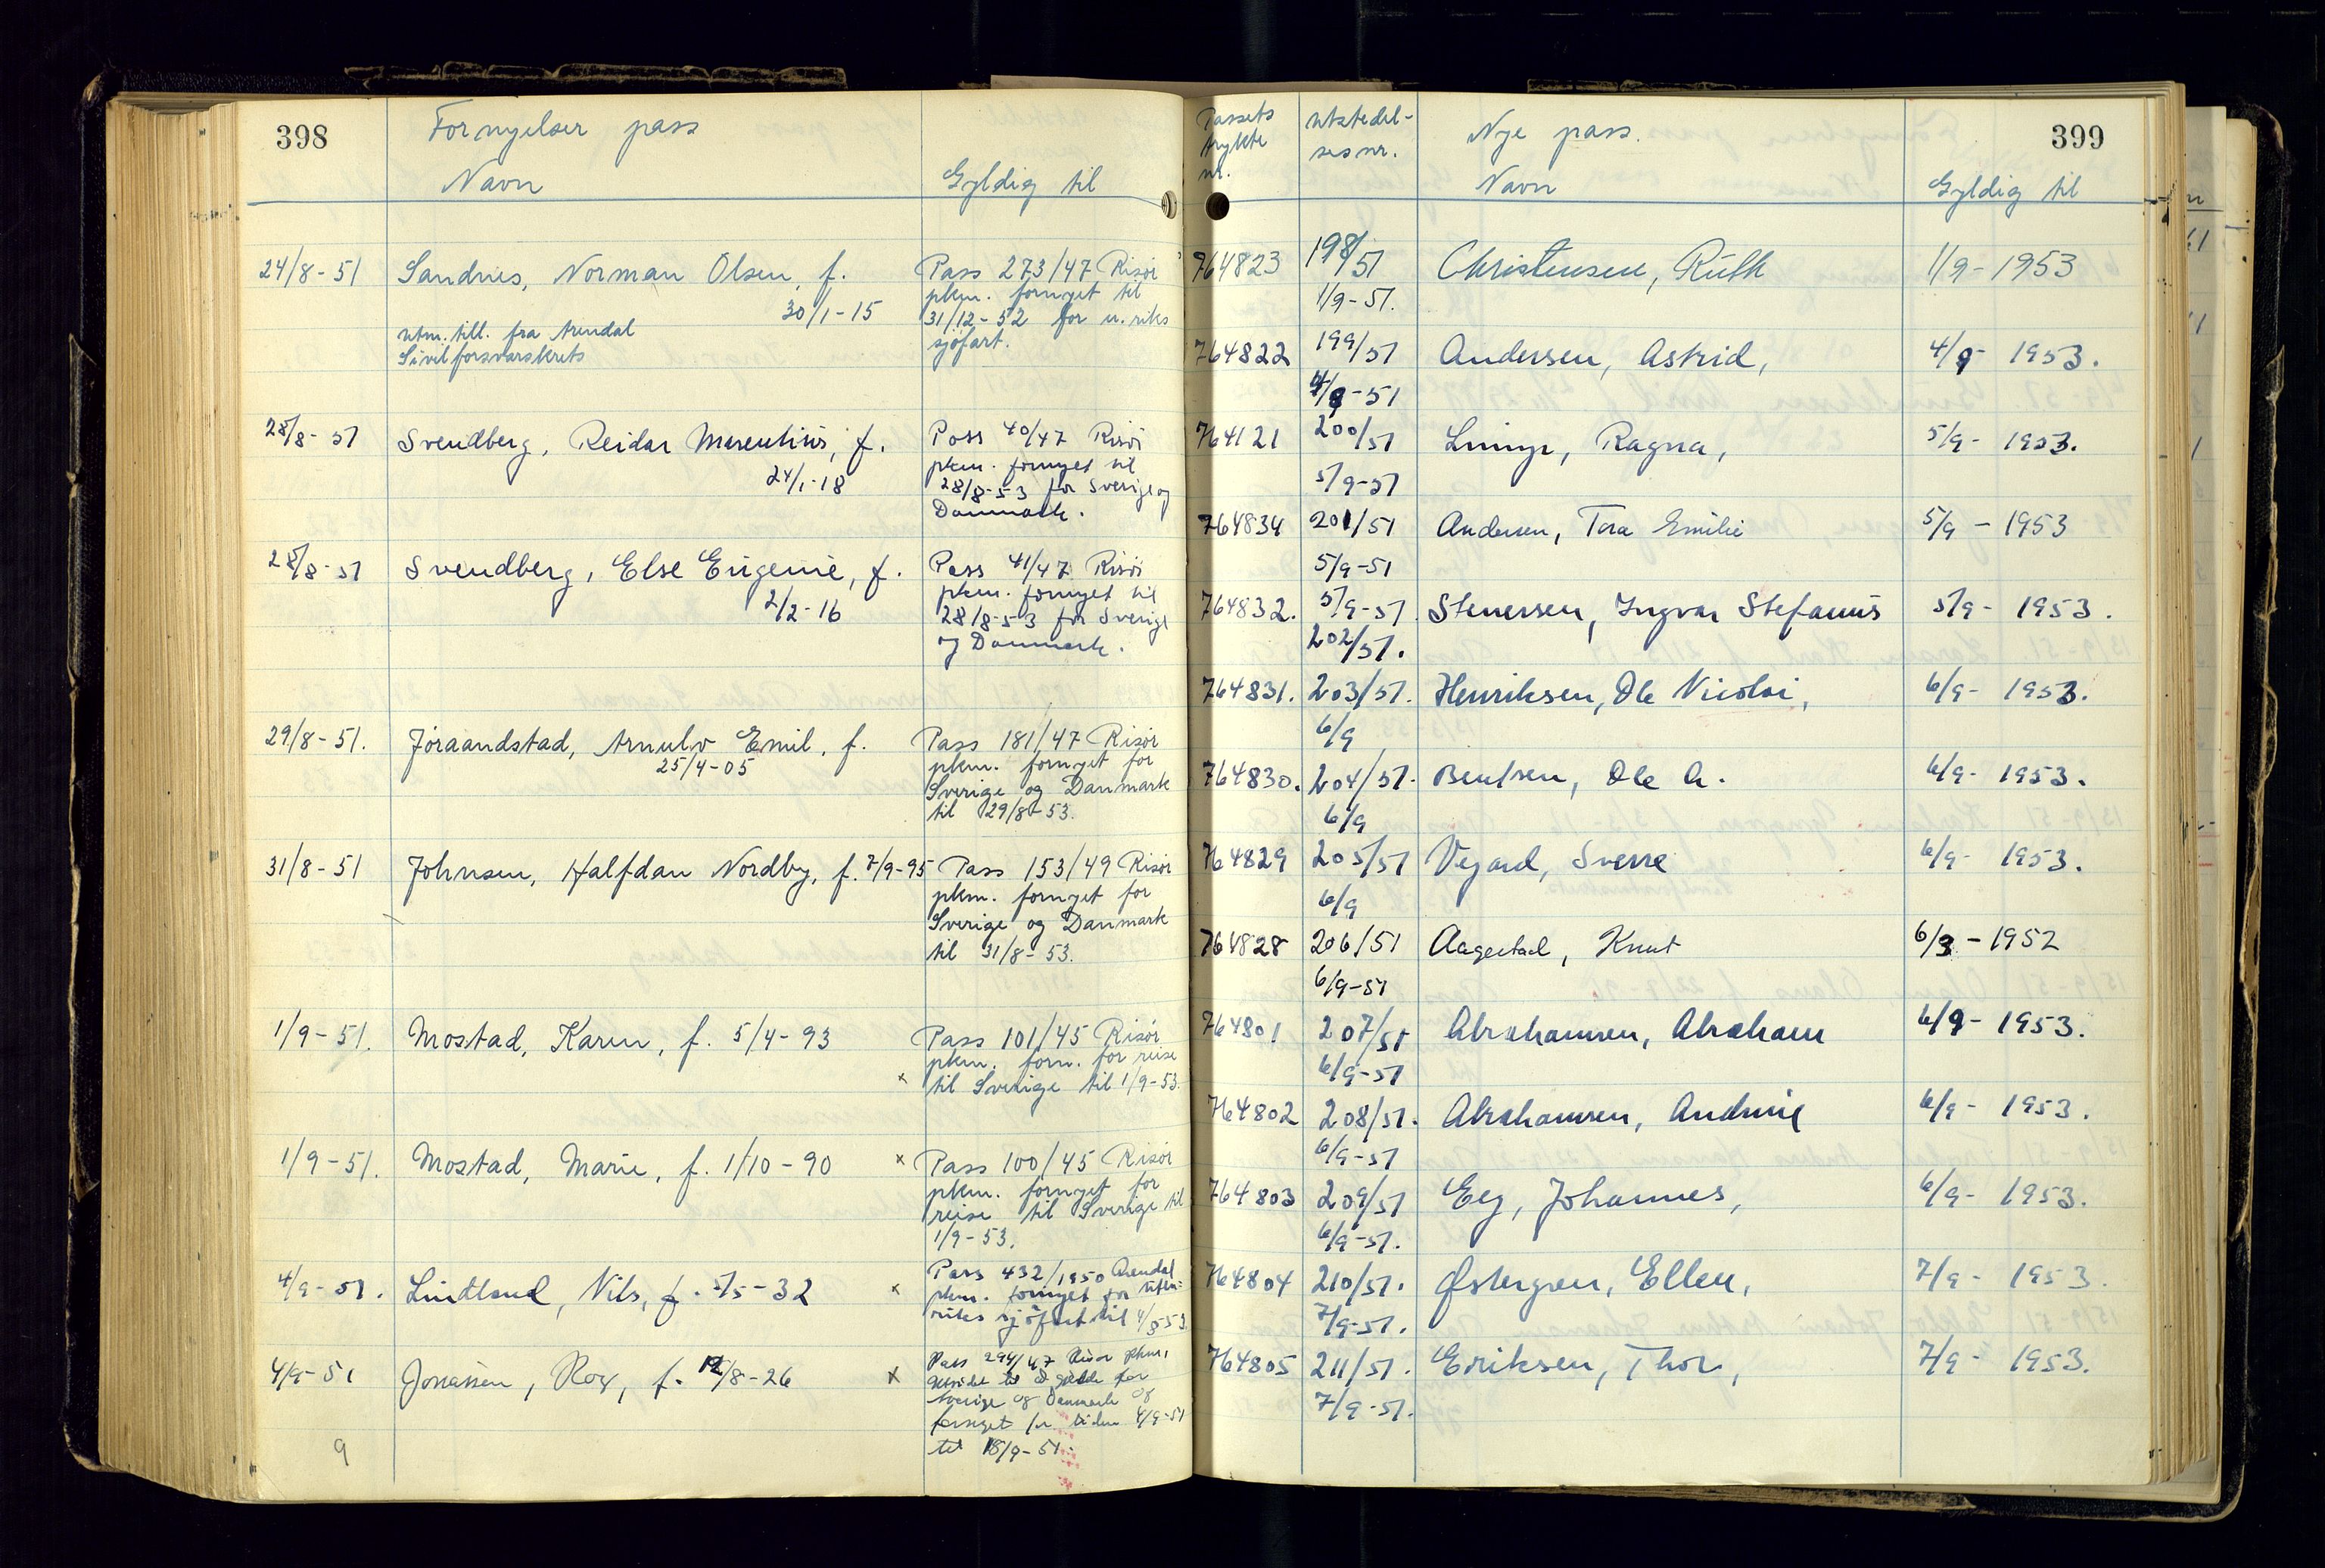 398
Fornyelser pass
Navn
Gyldig til
24/8-51 Sandnes, Norman Olsen, f.
30/1-15
utm. till. fra Arendal
Sivilforsvarskrets
Pass 273/47 Risør
pkm. fornyet til
31/12-52 for u.riks
sjøfart.
28/8-51 Svendberg, Reidar, f.
24/1-18
Pass 40/47 Risør
pkm. fornyet til
28/8-53 for Sverige og
Danmark.
28/8-51 Svendberg, Else Eugenie, f.
2/2-16
Pass 41/47 Risør
pkm. fornyet til
28/8-53 for Sverige
og Danmark.
29/8-51. Jøraandstad, Arnulv Emil, f.
25/4-05
Pass 181/47 Risør
pkm. fornyet for
Sverige og Danmark
til 29/8-53.
31/8-51 Johnsen, Halfdan Nordby, f. 7/9-95
Pass 153/49 Risør
pkm. fornyet for
Sverige og Danmark
til 31/8-53.
1/9-51. Mostad, Karen, f. 5/4-93
Pass 101/45 Risør
pkm. forn. for reise
x til Sverige til 1/9-53.
1/9-51. Mostad, Marie, f. 1/10-90
x Pass 100/45 Risør
pkm. fornyet for
reise til Sverige til
1/9-53.
4/9-51. Lindland, Nils, f. 5/5-32
x Pass 432/1950 Arendal
pkm. fornyet for uten-
riks sjøfart til
4/9-51 Jonassen, Roy, f. 12/8-26
x Pass 294/47 Risør pkm.
til å gjelde for
Sverige og Danmark og
fornyet for tiden 4/9-51
til 18/9-51.
9
399
Passets
trykte
nr.
utstedel-
ses nr.
Nye pass.
Navn
Gyldig til
764823 198/51 Christensen, Ruth 1/9-1953
1/9-51.
764822 199/51 Andersen, Astrid, 4/9-1953.
4/9-51
764121 200/51 Ragna, 5/9-1953.
5/9-51
764834 201/51 Andersen, Tora Emilie 5/9-1953
5/9-51
764832. 5/9-51 Stenersen, Ingvar Stefanus 5/9-1953.
202/51.
764831. 203/51. Henriksen, Ole Nicolai, 6/9-1953.
6/9
764830. 204/51. Bentsen, Ole A. 6/9-1953.
6/9
764829 205/51 Vegard, Sverre 6/9-1953.
6/9
764828 206/51 Aagestad, Knut 6/3-1952
6/9-51
764801 207/51 Abrahamsen, Abraham 6/9-1953.
6/9-51
764802 208/51. Abrahamsen, Andrine 6/9-1953.
6/9-51
764803 209/51 Eeg, Johannes, 6/9-1953.
6/9-51.
764804 210/51. Østergren, Ellen, 7/9-1953.
7/9-51.
764805 211/51. Eriksen, Thor, 7/9-1953.
7/9-51.